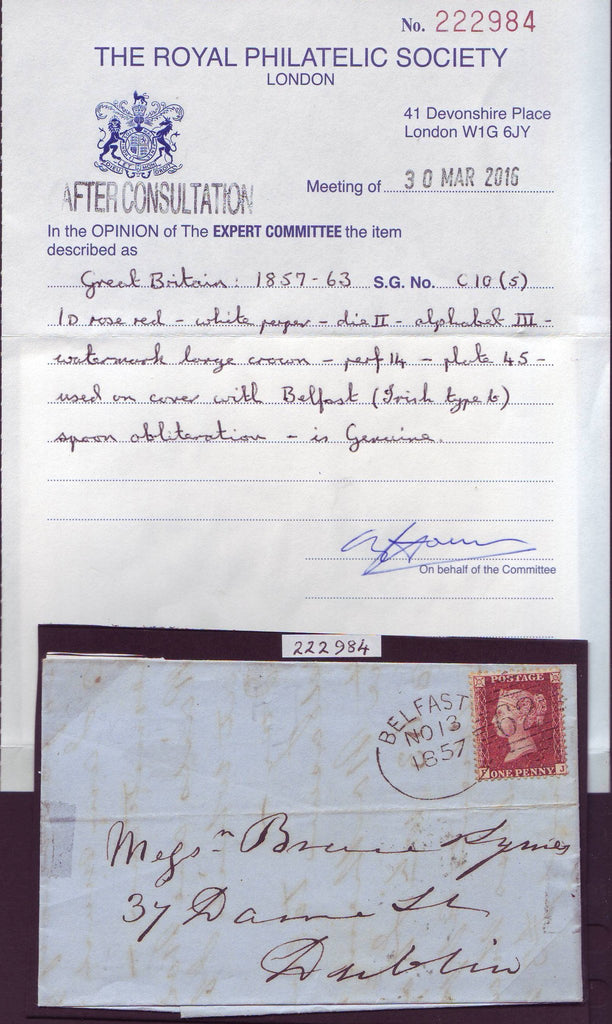 No. 222984
THE ROYAL PHILATELIC SOCIETY
LONDON
41 Devonshire Place
London W1G 6JY
AFTER CONSULTATION
Meeting of 30 MAR 2016
In the OPINION of The EXPERT COMMITTEE the item
described as
Great Britain: 1857-63 S.G. No. C10(5)
1D rose red - white paper - die II - alphabet III -
watermark large crown - perf 14 - plate 45 -
used on cover with Belfast (Irish type b)
spoon obliteration - is Genuine.
On behalf of the Committee
222984
BELFAST
NO 13
1857
POSTAGE
62
ONE PENNY
J
Messrs
37 Dame St
Dublin